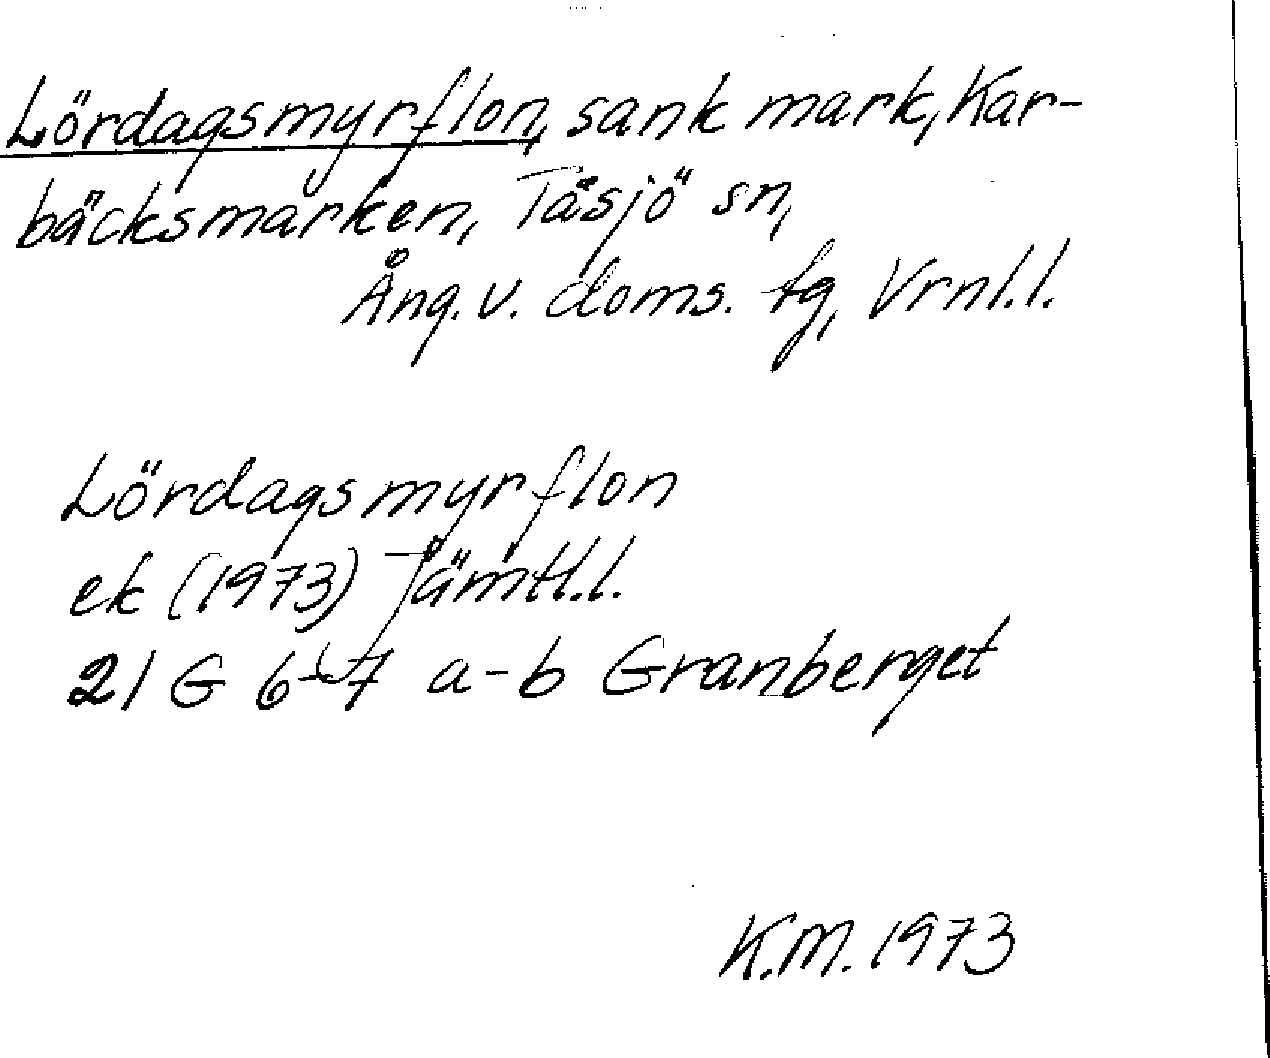 Lördagsmyrflon, sank mark, Kar-
bäcksmarken, Tåsjö sn,
Ång. v. doms. tg, Vrnl.l.
Lördagsmyrflon
ek (1973) Jämtl.l.
21 G 6-7 a-b Granberget
K.M. 1973